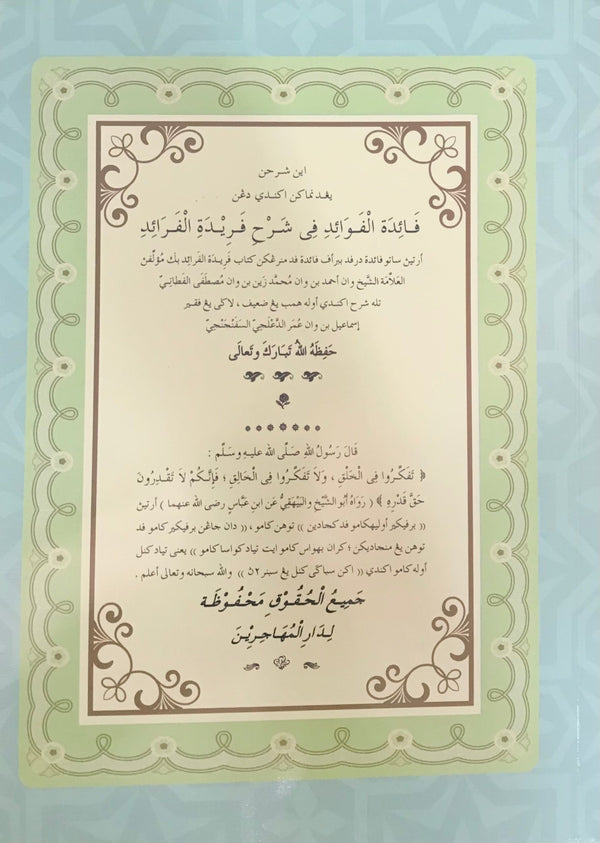 اين شرحن
يڠدنماكن اكندي دڠن
فَائِدَة الْفَوَائِدِ فِى شَرْحِ فَرِيْدَة الْفَرَائِدِ
أرتيڽ ساتو فائدة درفد ببراف فائدة فد منرڠكن كتاب فَرِيْدَة الفَرَائِد بݢ مُؤَلِّفْن
العَلاَّمَة الشَّيخ وان أحمد بن وان مُحمَّد زَين بن وان مُصطَفَى الفطانِـيّ
تله شرح اكندي أوله همب يڠ ضعيف ، لاݢي يڠ فقير
إسماعيل بن وان عُمَر
حَفِظَهُ اللهُ تَبَارَكَ وَتَعَالَى
قَالَ رَسُولُ اللهِ صَلَّى الله عليهِ وسَلَّم :
﴿ تَفَكَّرُوا فِى الْخَلْقِ ، وَلاَ تَفَكَّرُوا فِى الْخَالِقِ ؛ فَإِنَّكُمْ لاَ تَقْدِرُونَ
حَقَّ قَدْرِهِ ﴾ ( رَوَاهُ أَبُو الشَّيْخ والبَيْهَقِيُّ عَن ابنِ عَبَّاسٍ رضى الله عنهما ) أرتيڽ
(( برفيكير أوليهكامو فد كجادين )) توهن كامو ، (( دان جاڠن برفيكير كامو فد
توهن يڠ منجاديكن ؛ كران بهواس كامو ايت تياد كواسا كامو )) يعنى تياد كنل
أوله كامو اكندي (( اكن سباݢي كنل يڠ سبنر٢ڽ )) والله سبحانه وتعالى أعلم .
جَمِيعُ الْحُقُوْقِ مَحْفُوْظَة
لِدَارِ الْمُهَاجِرِيْنَ